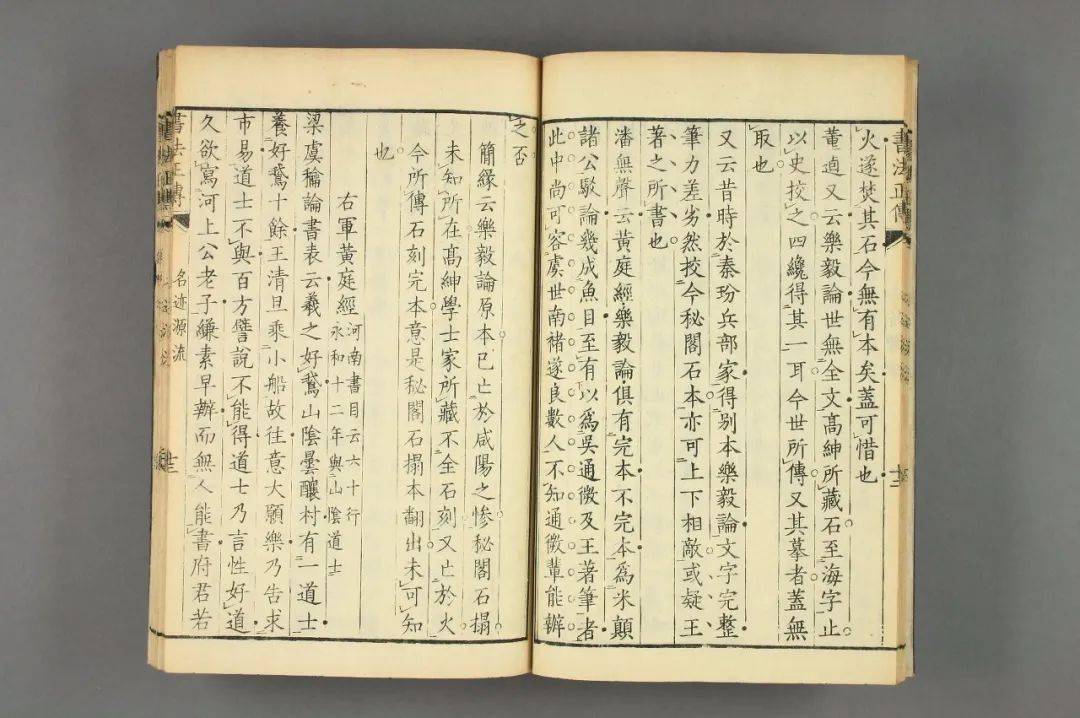 書法正傳
火遂焚其石今無有本矣蓋可惜也
董逌又云樂毅論世無全文髙紳所藏石至海字止
以史挍之四纔得其一耳今世所傳又其摹者蓋無
取也
又云昔時於秦玢兵部家得别本樂毅論文字完整
筆力差劣然挍今秘閣石本亦可上下相敵或疑王
著之所書也
潘無聲云黄庭經樂毅論俱有完本不完本爲米顛
諸公駁論幾成魚目至有以爲吳通微及王著筆者
此中尚可容虞世南禇遂良數人不知通微輩能辦
之否
簡緣云樂毅論原本已亡於咸陽之慘秘閣石搨
未知所在髙紳學士家所藏不全石刻又亡於火
今所傳石刻完本意是秘閣石搨本翻出未可知
也
右軍黄庭經
河南書目云六十行
永和十二年與山陰道士
梁虞龢論書表云羲之好鵞山陰曇釀村有一道士
養好鵞十餘王清旦乘小船故往意大願樂乃告求
市易道士不與百方譬說不能得道士乃言性好道
久欲寫河上公老子縑素早辦而無人能書府君若
書法正傳
名迹源流